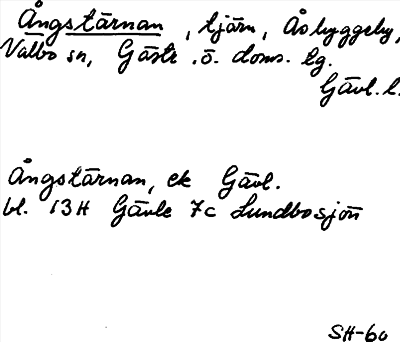 Ångstärnan, tjärn, Åbyggeby,
Valbo sn, Gästr. ö. doms. tg.
Gävl. l.
Ångstärnan, ek Gävl.
bl. 13H Gävle 7c Lundbosjön
SH-60